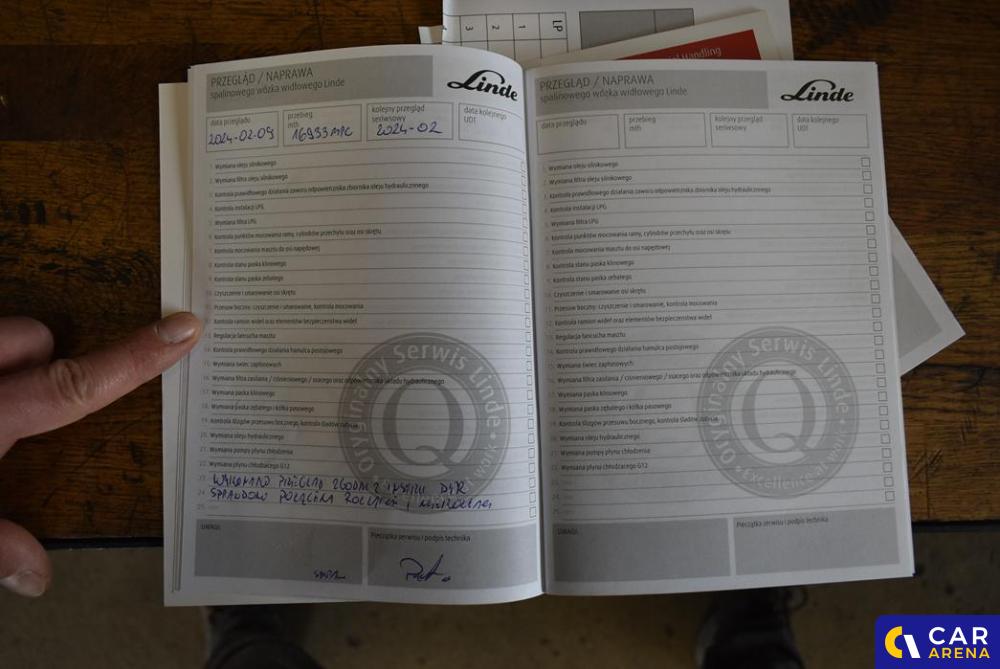 LP
1
2
3
Handling
PRZEGLĄD / NAPRAWA
spalinowego wózka widłowego Linde
Linde
data przeglądu
2024-02-09
przebieg
mth
16933 MPG
kolejny przegląd
serwisowy
2024-02
data kolejnego
UDT
1. Wymiana oleju silnikowego
2. Wymiana filtra oleju silnikowego
3. Kontrola prawidłowego działania zaworu odpowietrznika zbiornika oleju hydraulicznego
4. Kontrola instalacji LPG
5. Wymiana filtra LPG
6. Kontrola punktów mocowania ramy, cylindrów przechyłu oraz osi skrętu
7. Kontrola mocowania masztu do osi napędowej
8. Kontrola stanu paska klinowego
9. Kontrola stanu paska zębatego
10. Czyszczenie i smarowanie osi skrętu
11. Przesuw boczny: czyszczenie i smarowanie, kontrola mocowania
12. Kontrola ramion wideł oraz elementów bezpieczeństwa wideł
13. Regulacja łańcucha masztu
14. Kontrola prawidłowego działania hamulca postojowego
15. Wymiana świec zapłonowych
16. Wymiana filtra zasilania / ciśnieniowego / ssącego oraz odpowietrznika układu hydraulicznego
17. Wymiana paska klinowego
18. Wymiana paska zębatego i kółka pasowego
19. Kontrola ślizgów przesuwu bocznego, kontrola śladów zużycia
20. Wymiana oleju hydraulicznego
21. Wymiana pompy płynu chłodzenia
22. Wymiana płynu chłodzącego G12
23.
24.
25.
Oryginalny Serwis Linde
Q
at work
UWAGI
Pieczątka serwisu i podpis technika
PRZEGLĄD / NAPRAWA
spalinowego wózka widłowego Linde
Linde
data przeglądu
przebieg
mth
kolejny przegląd
serwisowy
data kolejnego
UDT
1. Wymiana oleju silnikowego
2. Wymiana filtra oleju silnikowego
3. Kontrola prawidłowego działania zaworu odpowietrznika zbiornika oleju hydraulicznego
4. Kontrola instalacji LPG
5. Wymiana filtra LPG
6. Kontrola punktów mocowania ramy, cylindrów przechyłu oraz osi skrętu
7. Kontrola mocowania masztu do osi napędowej
8. Kontrola stanu paska klinowego
9. Kontrola stanu paska zębatego
10. Czyszczenie i smarowanie osi skrętu
11. Przesuw boczny: czyszczenie i smarowanie, kontrola mocowania
12. Kontrola ramion wideł oraz elementów bezpieczeństwa wideł
13. Regulacja łańcucha masztu
14. Kontrola prawidłowego działania hamulca postojowego
15. Wymiana świec zapłonowych
16. Wymiana filtra zasilania / ciśnieniowego / ssącego oraz odpowietrznika układu hydraulicznego
17. Wymiana paska klinowego
18. Wymiana paska zębatego i kółka pasowego
19. Kontrola ślizgów przesuwu bocznego, kontrola śladów zużycia
20. Wymiana oleju hydraulicznego
21. Wymiana pompy płynu chłodzenia
22. Wymiana płynu chłodzącego G12
23.
24.
25.
Oryginalny Serwis Linde
Q
Excellence at work
UWAGI
Pieczątka serwisu i podpis technika
CAR
ARENA